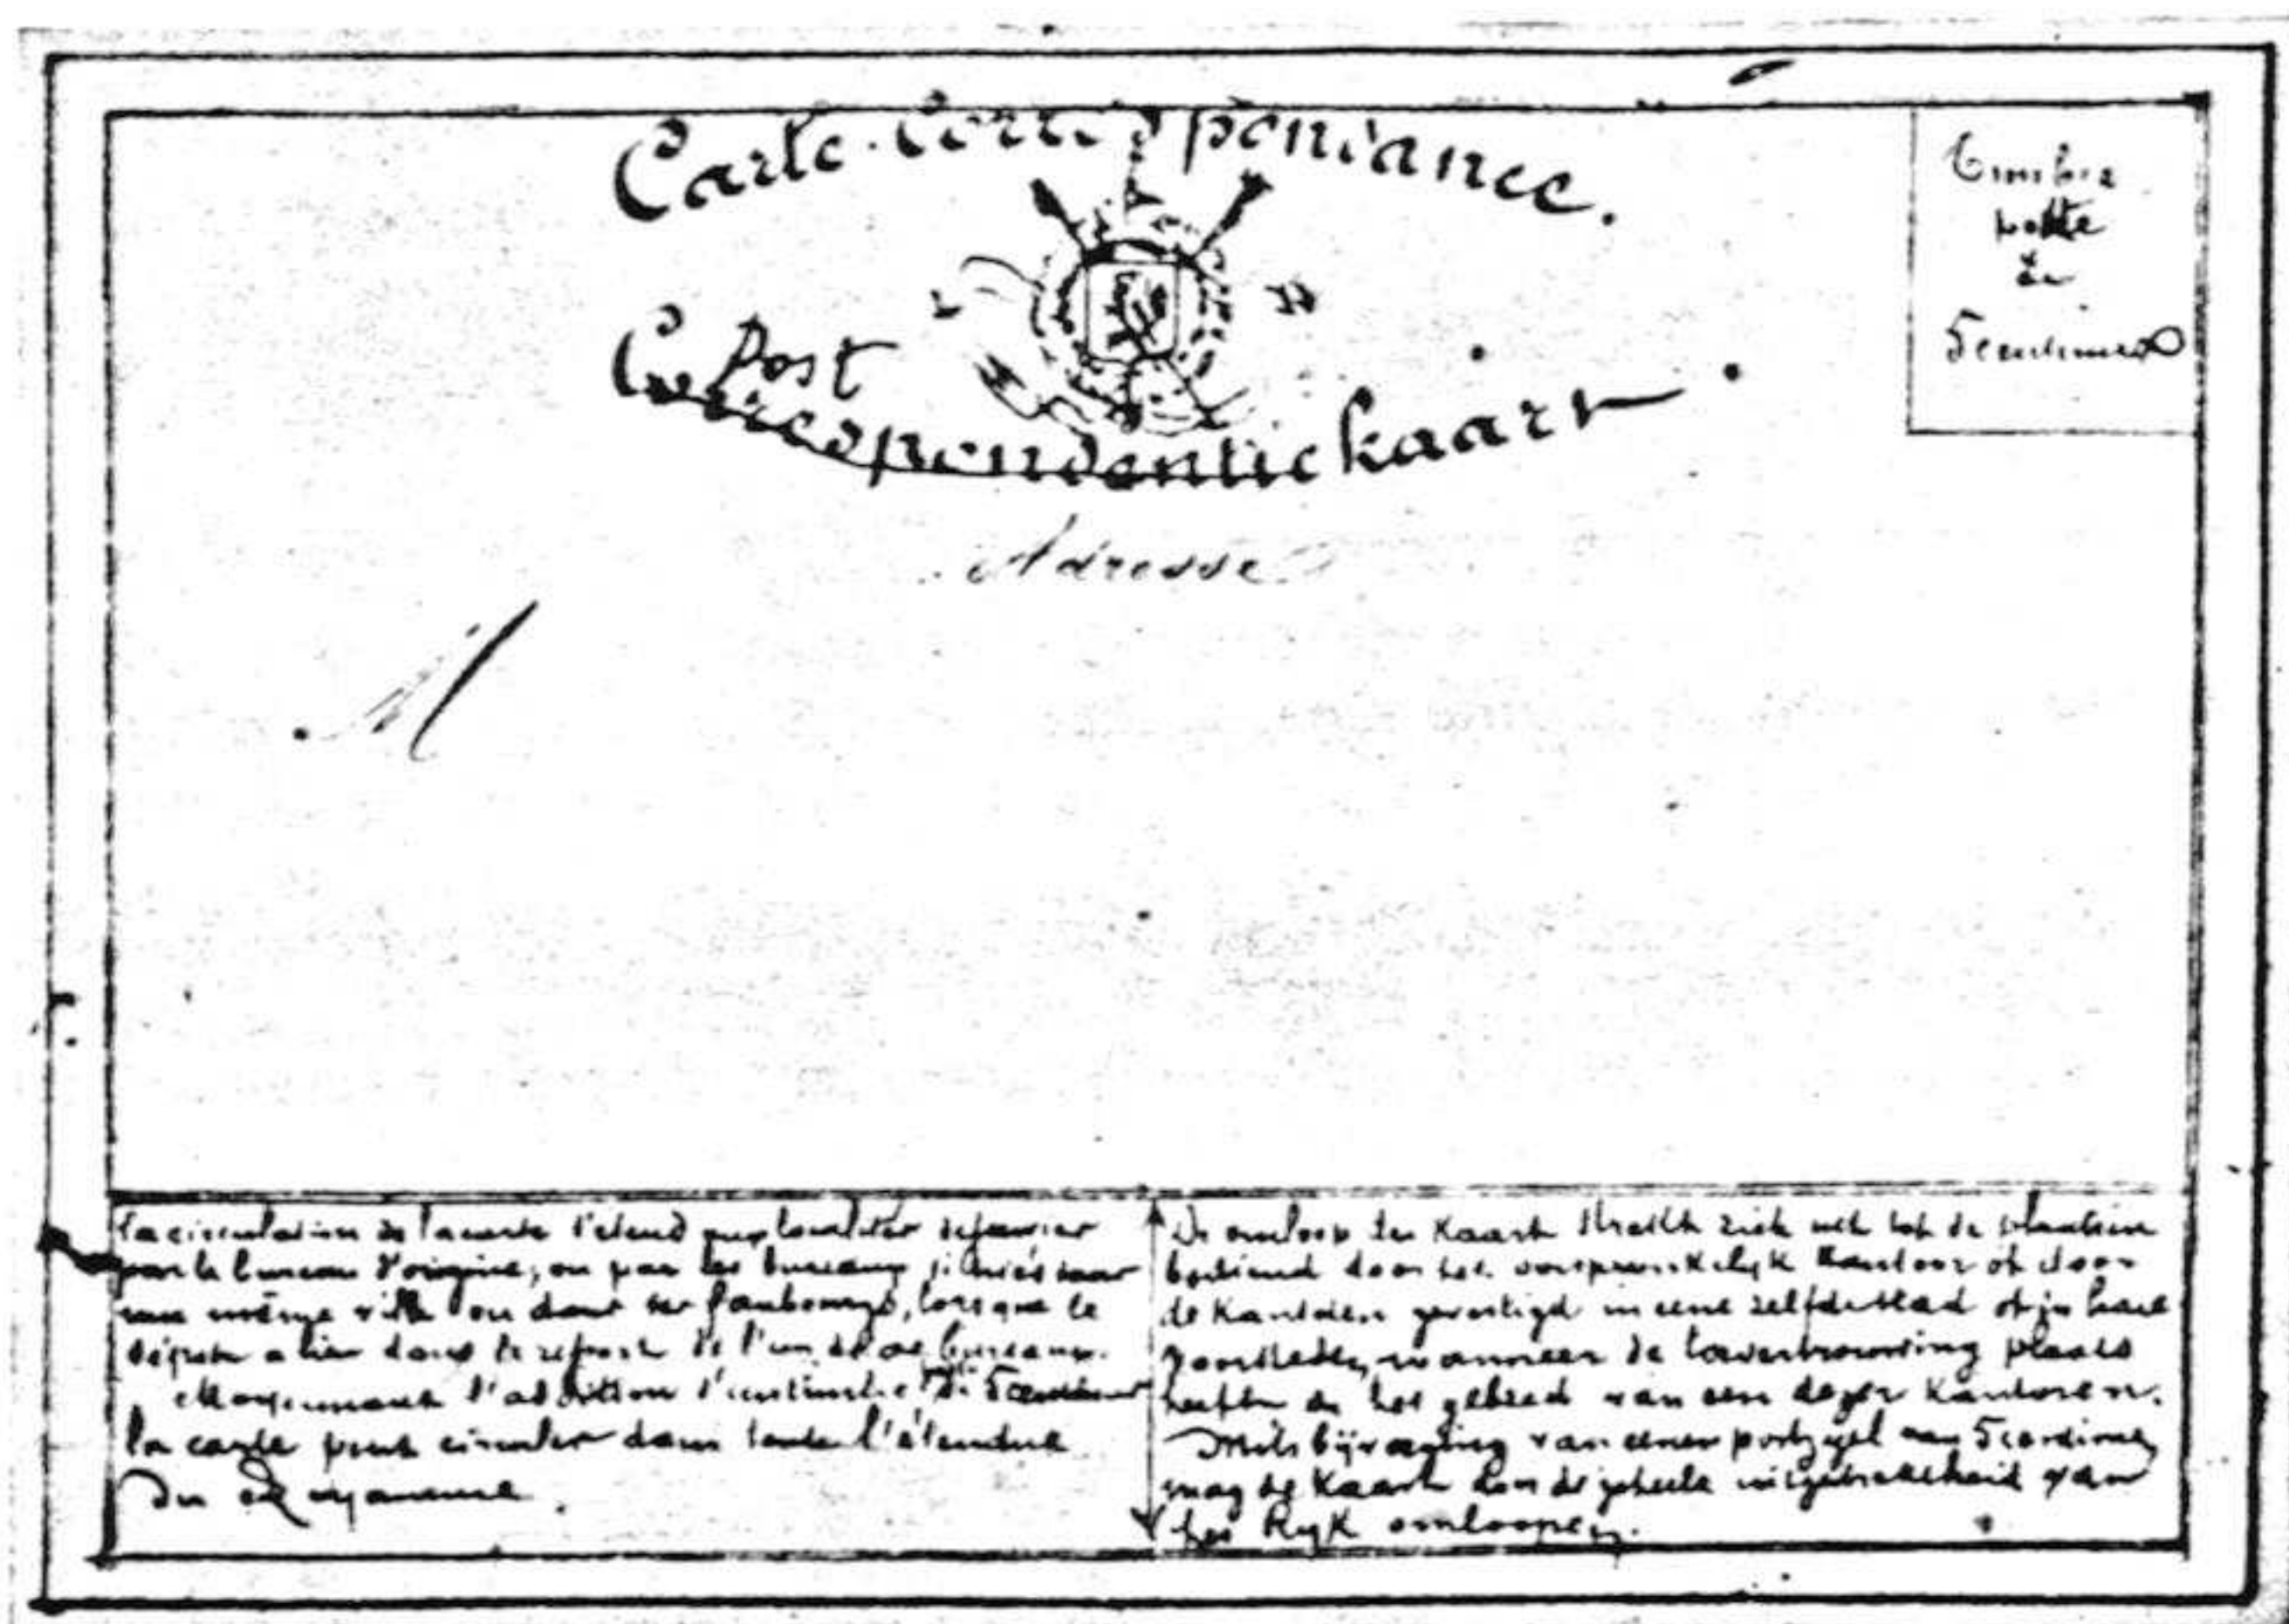 Carte-Correspondance.
Timbre
poste
de
5 centimes
Post
Correspondentiekaart.
Adresse
M
La circulation de la carte s'étend aux localités
par le bureau d'origine, ou par les bureaux
une même ville ou dans ses faubourgs, lorsque le
dépôt a lieu dans le ressort de l'un de ces bureaux.
Moyennant l'addition d'un timbre de 5 centimes
la carte peut circuler dans toute l'étendue
du Royaume.
De omloop der Kaart strekt zich uit tot de plaatsen
bediend door het oorspronkelijk Kantoor of door
de Kantoren gevestigd in eene zelfde stad of in hare
voorsteden, wanneer de plaats
heeft in het gebied van een dezer Kantoren.
Mits bijvoeging van eenen portzegel van 5 centimen
mag de Kaart door de geheele uitgestrektheid van
het Rijk omloopen.